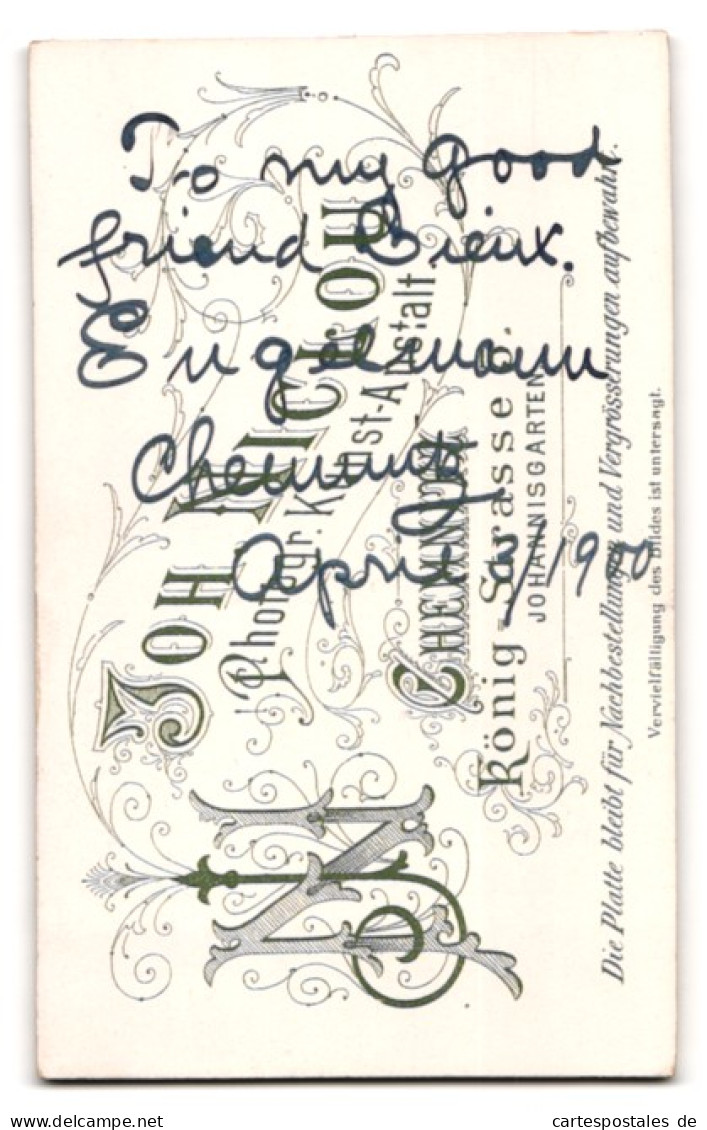 To my good
friend
Engelmann
Chemnitz
April 3/1900
JN
JOH NICKOL
Photogr. Kunst-Anstalt.
CHEMNITZ
König-Strasse
JOHANNISGARTEN
Die Platte bleibt für Nachbestellungen und Vergrösserungen aufbewahrt.
Vervielfältigung des Bildes ist untersagt.
www.delcampe.net
cartespostales de